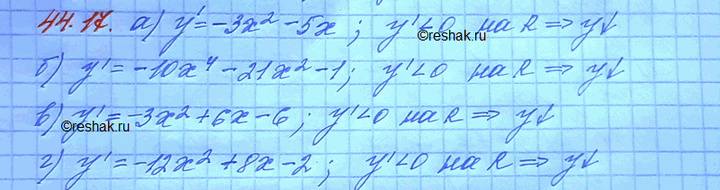 44.17. а) y' = -3x² - 5x ; y' < 0 на R ⇒ y↓
©reshak.ru
б) y' = -10x⁴ - 21x² - 1; y' < 0 на R ⇒ y↓
в) y' = -3x² + 6x - 6 ; y' < 0 на R ⇒ y↓
©reshak.ru
г) y' = -12x² + 8x - 2 ; y' < 0 на R ⇒ y↓